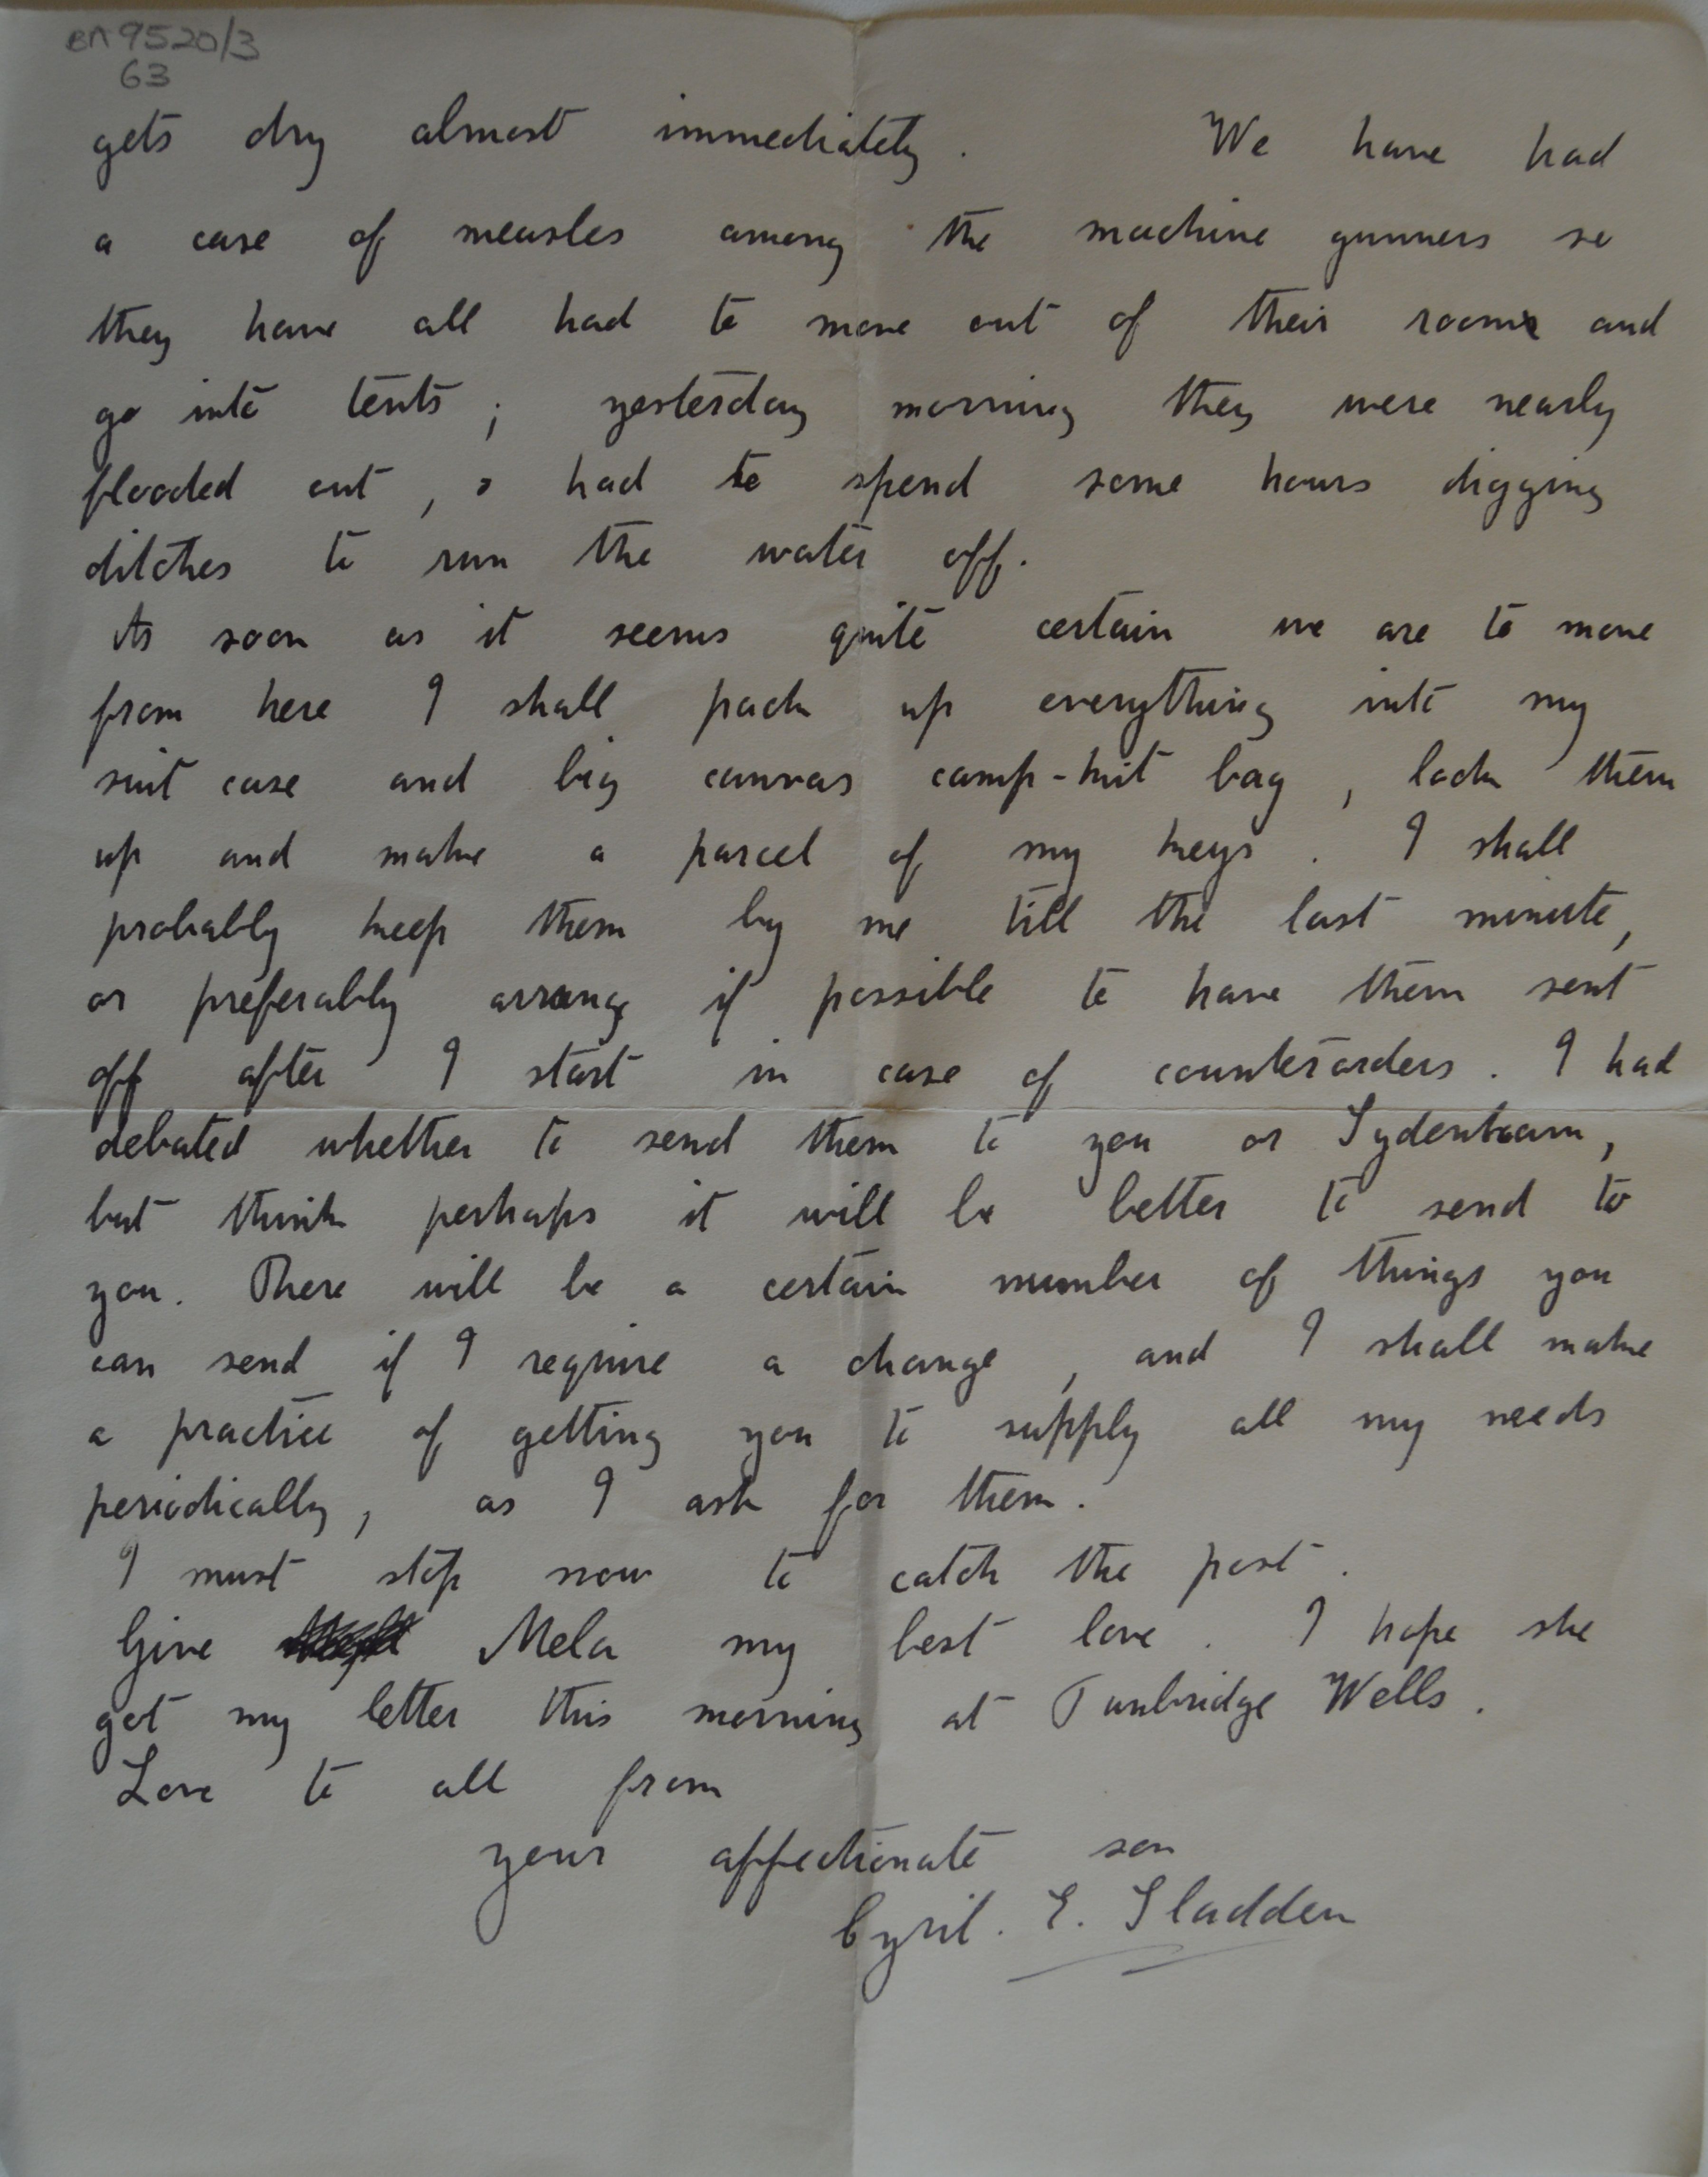 BA 9520/3
63
gets dry almost immediately. We have had
a case of measles among the machine gunners so
they have all had to move out of their rooms and
go into tents; yesterday morning they were nearly
flooded out, & had to spend some hours digging
ditches to run the water off.
As soon as it seems quite certain we are to move
from here I shall pack up everything into my
suit case and big canvas camp-kit bag, lock them
up and make a parcel of my keys. I shall
probably keep them by me till the last minute,
or preferably arrange if possible to have them sent
off after I start in case of counterorders. I had
debated whether to send them to you or Sydenham,
but think perhaps it will be better to send to
you. There will be a certain number of things you
can send if I require a change, and I shall make
a practice of getting you to supply all my needs
periodically, as I ask for them.
I must stop now to catch the post.
Give Mela my best love. I hope she
got my letter this morning at Tunbridge Wells.
Love to all from
your affectionate son
Cyril. E. Sladden